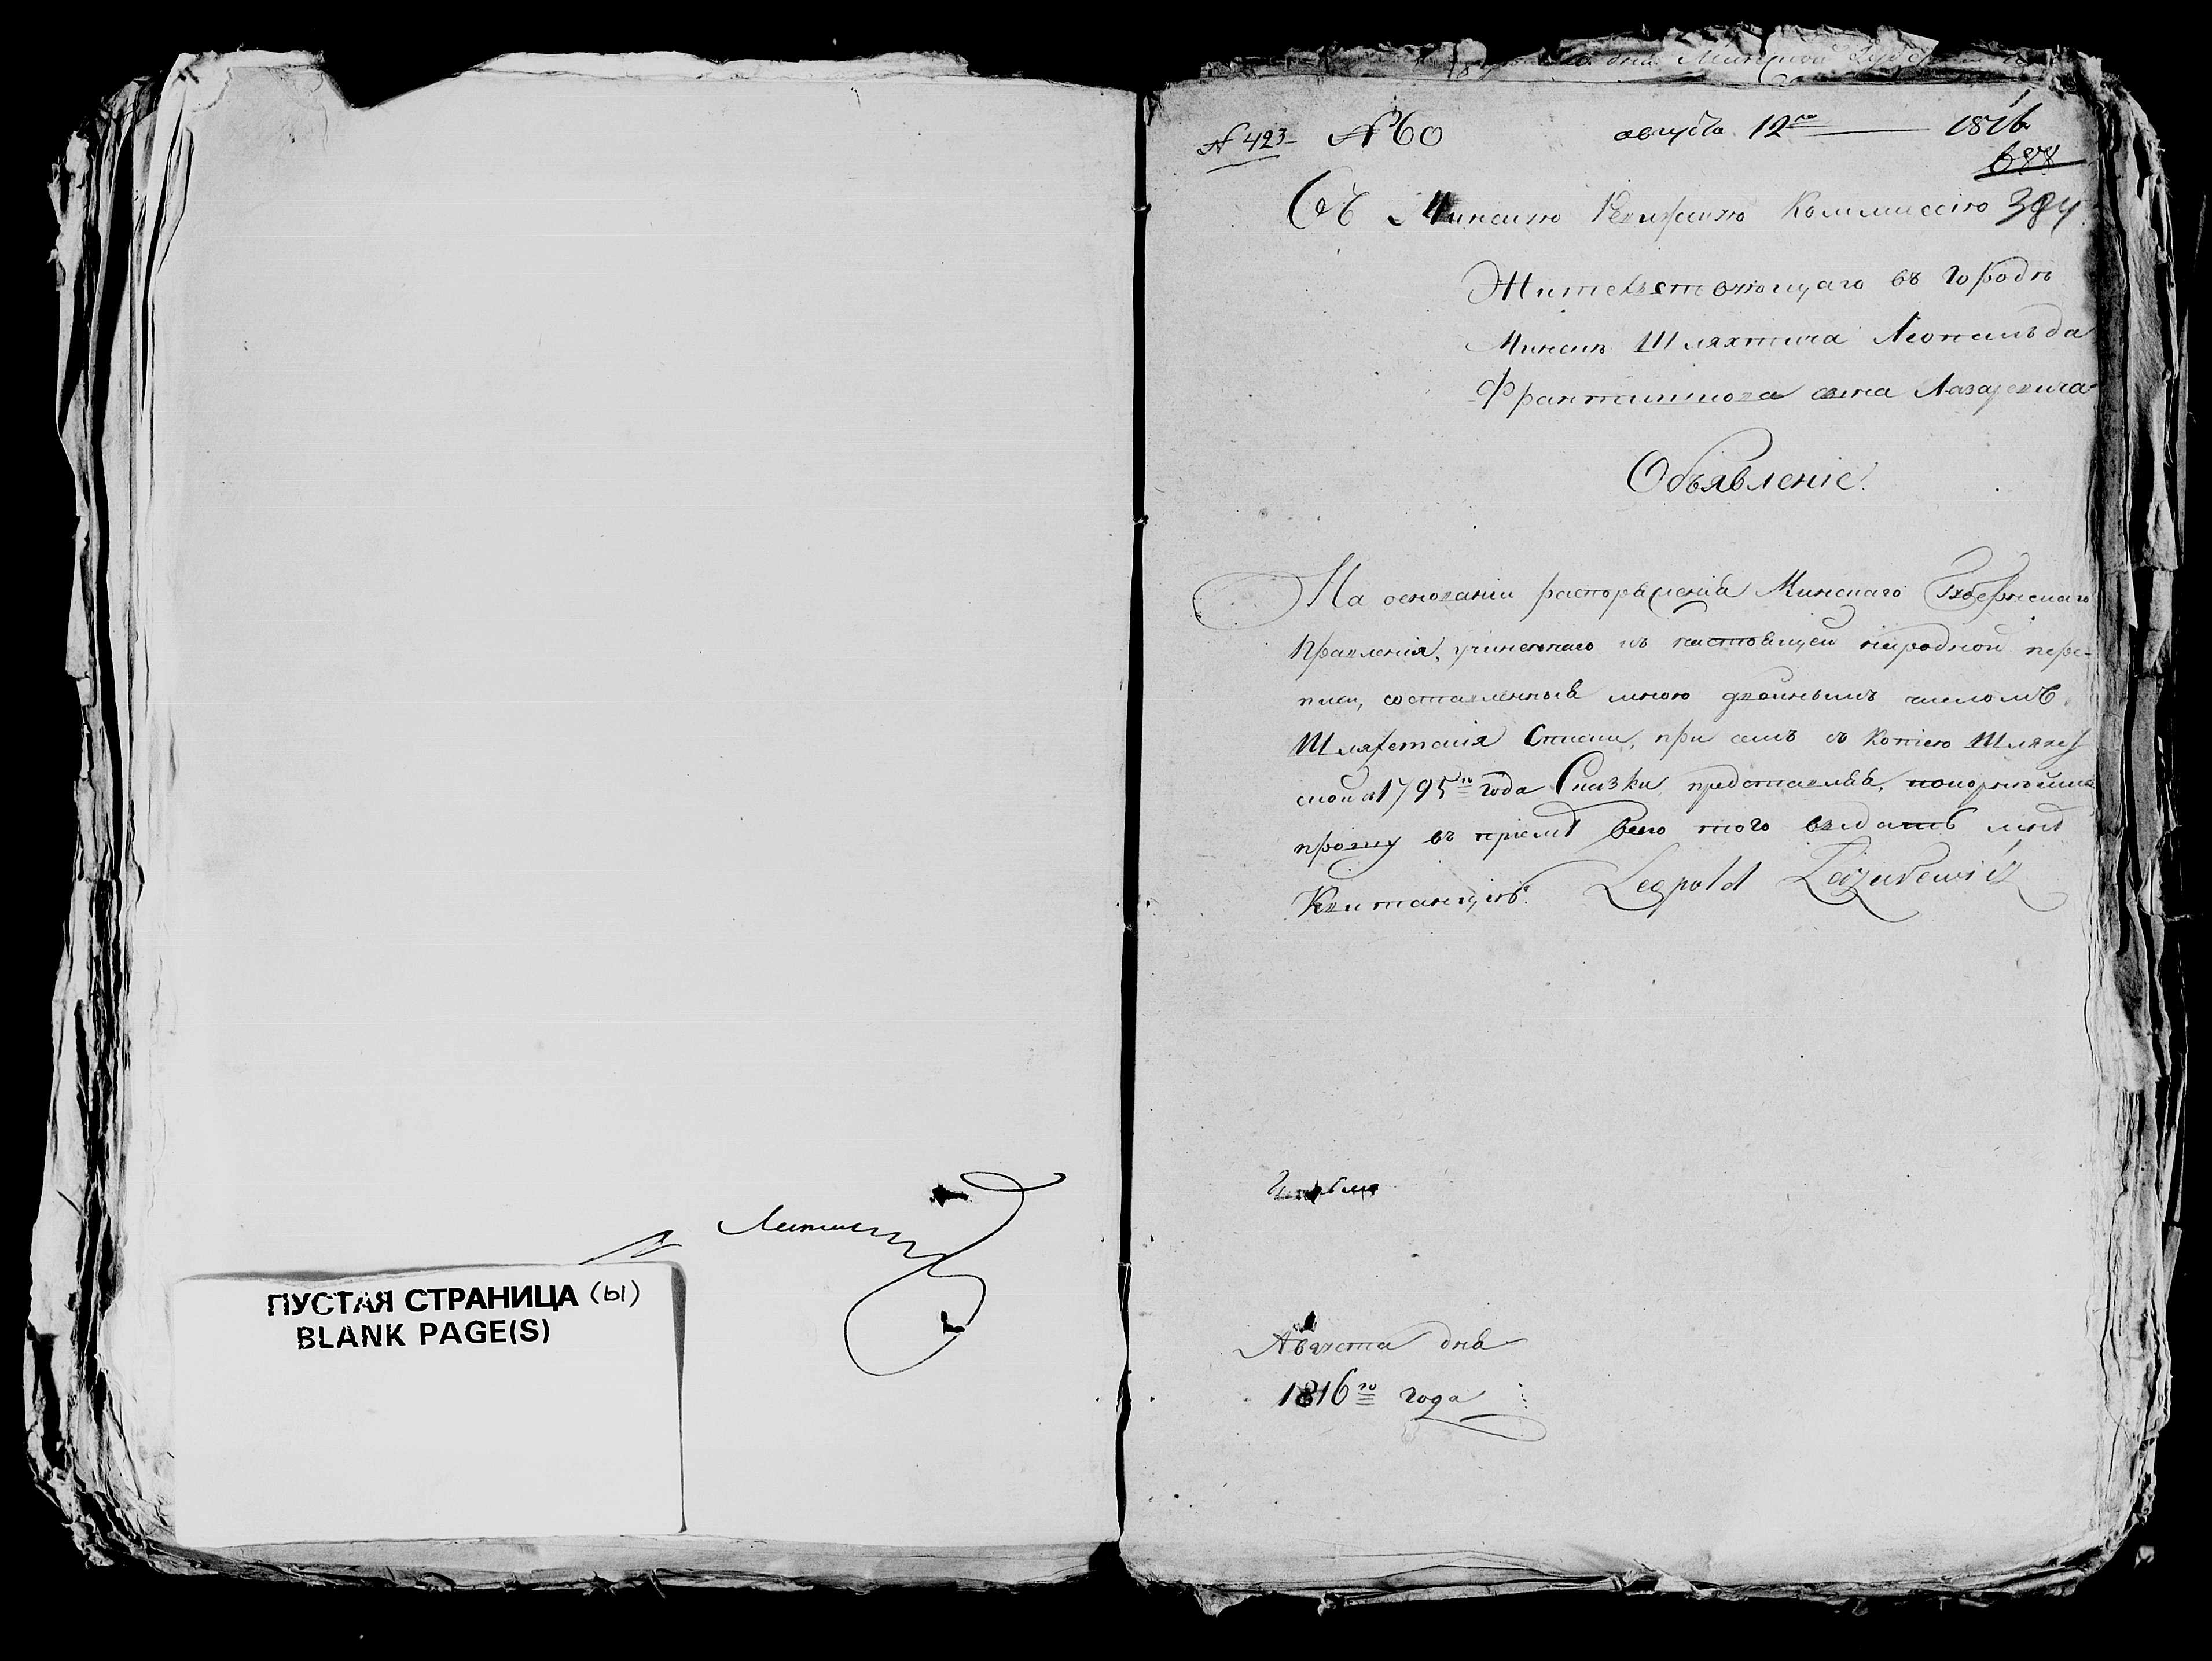 ПУСТАЯ СТРАНИЦА (ы)
BLANK PAGE(S)
№ 423 № 60 августа 12го 1816
688
Въ Минскую Ревизскую Коммиссію 384
Жительствующаго въ Городѣ
Минскѣ Шляхтича Леопольда
Франтишкова сына Лазаревича
Объявленіе.
На основаніи распоряженія Минскаго Губернскаго
Правленія, учиненнаго къ настоящей народной пере-
писи, составленныя мною двойнымъ числомъ
Шляхетскія Списки, при семъ съ Копіею Шляхет
ской 1795го года Сказки представляя, покорнѣйше
прошу въ пріемѣ всего того выдать мнѣ
Квитанцію. Leopold Łazarewicz
Августа дня
1816го года